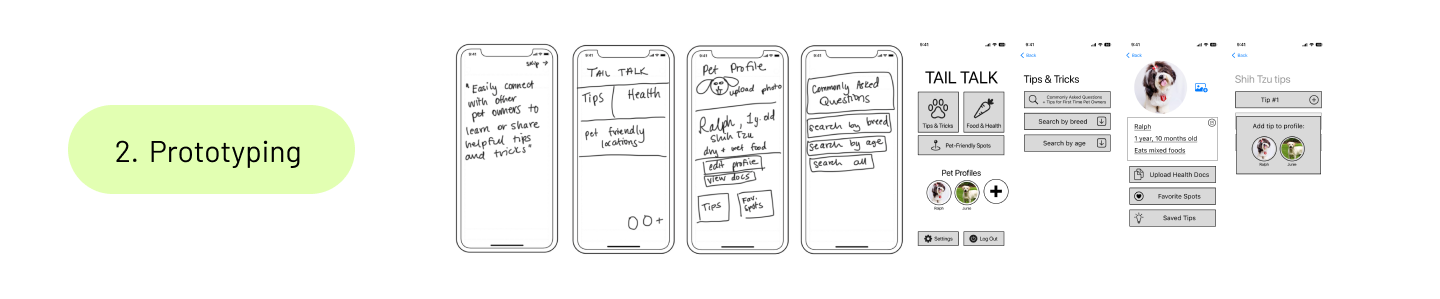 2. Prototyping
9:41
skip →
"Easily connect
with other
pet owners to
learn or share
helpful tips
and tricks"
9:41
TAIL TALK
Tips
Health
pet friendly
locations
9:41
Pet Profile
upload photo
Ralph, 1 y. old
Shih Tzu
dry + wet food
edit profile
view docs
Tips
Fav.
Spots
9:41
Commonly Asked
Questions
search by breed
search by age
search all
9:41
TAIL TALK
Tips & Tricks
Food & Health
Pet-Friendly Spots
Pet Profiles
Ralph
June
Settings
Log Out
9:41
Back
Tips & Tricks
Commonly Asked Questions
+ Tips for First Time Pet Owners
Search by breed
Search by age
9:41
Back
Ralph
1 year, 10 months old
Eats mixed foods
Upload Health Docs
Favorite Spots
Saved Tips
9:41
Back
Shih Tzu tips
Tip #1
Add tip to profile:
Ralph
June